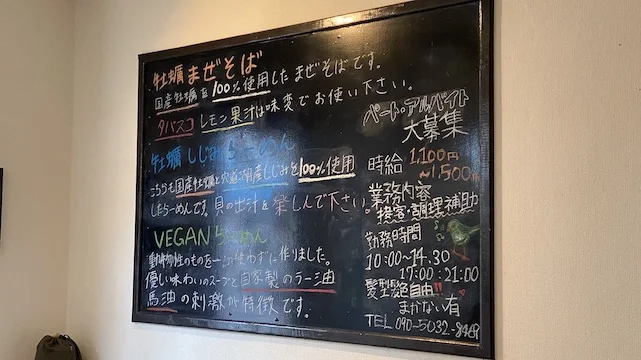 牡蠣まぜそば
国産牡蠣を100%使用したまぜそばです。
タバスコ レモン果汁は味変でお使い下さい。
牡蠣しじみらーめん
こちらも国産牡蠣と宍道湖産しじみを100%使用
したらーめんです。貝の出汁を楽しんで下さい。
VEGANらーめん
動物性のものを一つも使わずに作りました。
優しい味わいのスープと自家製のラー油
馬油の刺激が特徴です。
パート・アルバイト
大募集
時給 1,100円
〜1,500円
業務内容
接客・調理補助
勤務時間
10:00〜14:30
17:00:21:00
髪型髪色自由!!
まかない有
TEL 090-5032-8469